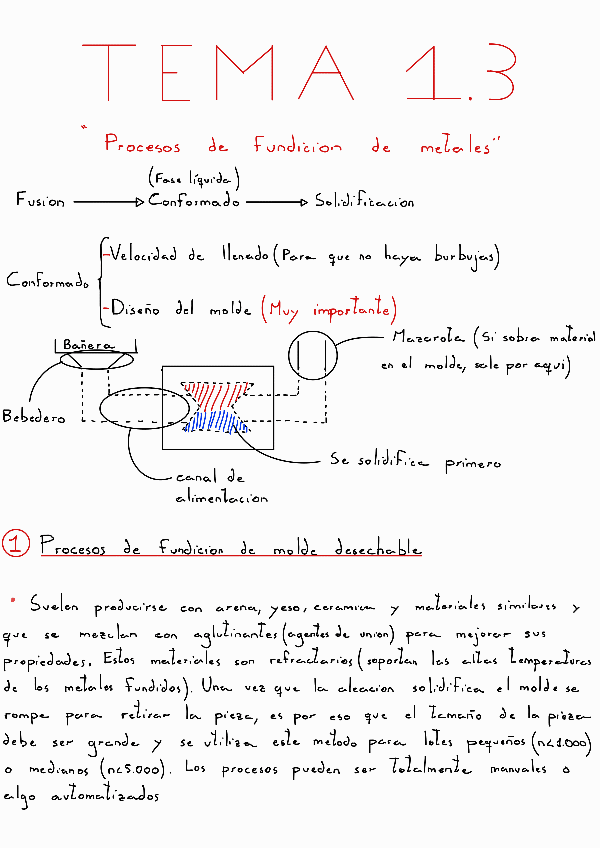 TEMA 1.3
"Procesos de fundicion de metales"
(Fase líquida)
Fusion → Conformado → Solidificacion
Conformado
-Velocidad de llenado (Para que no haya burbujas)
-Diseño del molde (Muy importante)
Bañera
Mazarota (Si sobra material
en el molde, sale por aqui)
Bebedero
Se solidifica primero
canal de
alimentacion
1 Procesos de fundicion de molde desechable
• Suelen producirse con arena, yeso, ceramica y materiales similares y
que se mezclan con aglutinantes (agentes de union) para mejorar sus
propiedades. Estos materiales son refractarios (soportan las altas temperaturas
de los metales fundidos). Una vez que la aleacion solidifica el molde se
rompe para retirar la pieza, es por eso que el tamaño de la pieza
debe ser grande y se utiliza este metodo para lotes pequeños (n<1.000)
o medianos (n<5.000). Los procesos pueden ser totalmente manuales o
algo automatizados